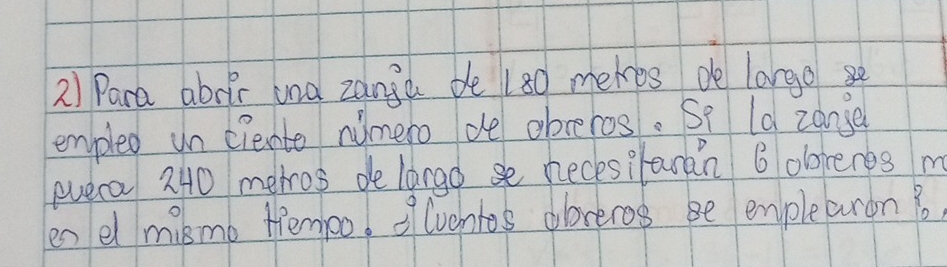 2) Para abrir una zanja de 180 metros de largo se
empleo un ciento número de obreros. Si la zanja
fuera 240 metros de largo se necesitarán 6 obreros m
en el mismo tiempo. ¿Cuantos obreros se emplearon?